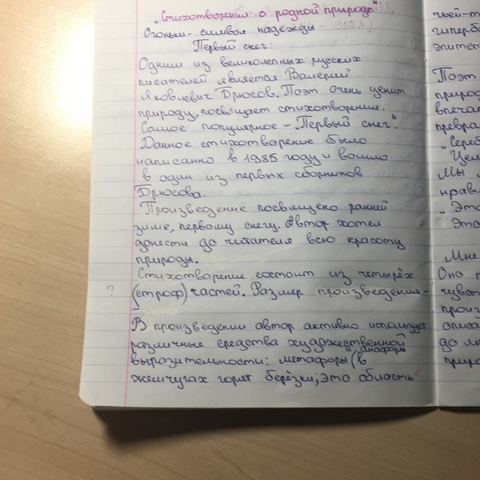 „Стихотворения о родной природе"
Огоньки - символ надежды
Первый снег:
Одним из великолепных русских
писателей является Валерий
Яковлевич Брюсов. Поэт очень ценит
природу, посвящает стихотворения.
Самое популярное - „Первый снег".
Данное стихотворение было
написанно в 1985 году и вошло
в один из первых сборников
Брюсова.
Произведение посвящено ранней
зиме, первому снегу. Автор хотел
донести до читателя всю красоту
природы.
Стихотворение состоит из четырёх
? (строф) частей. Размер произведения -
В произведении автор активно использует
различные средства художественной
выразительности: метафоры (в
жемчугах горят берёзки; это область
чьей-т
гиперб
эпитет
Поэт
природ
впечат
превра
„Сереб
Цел
Мы
нрави
„Это
Это
Мне
Она
чувст
произ
описа
до
приро